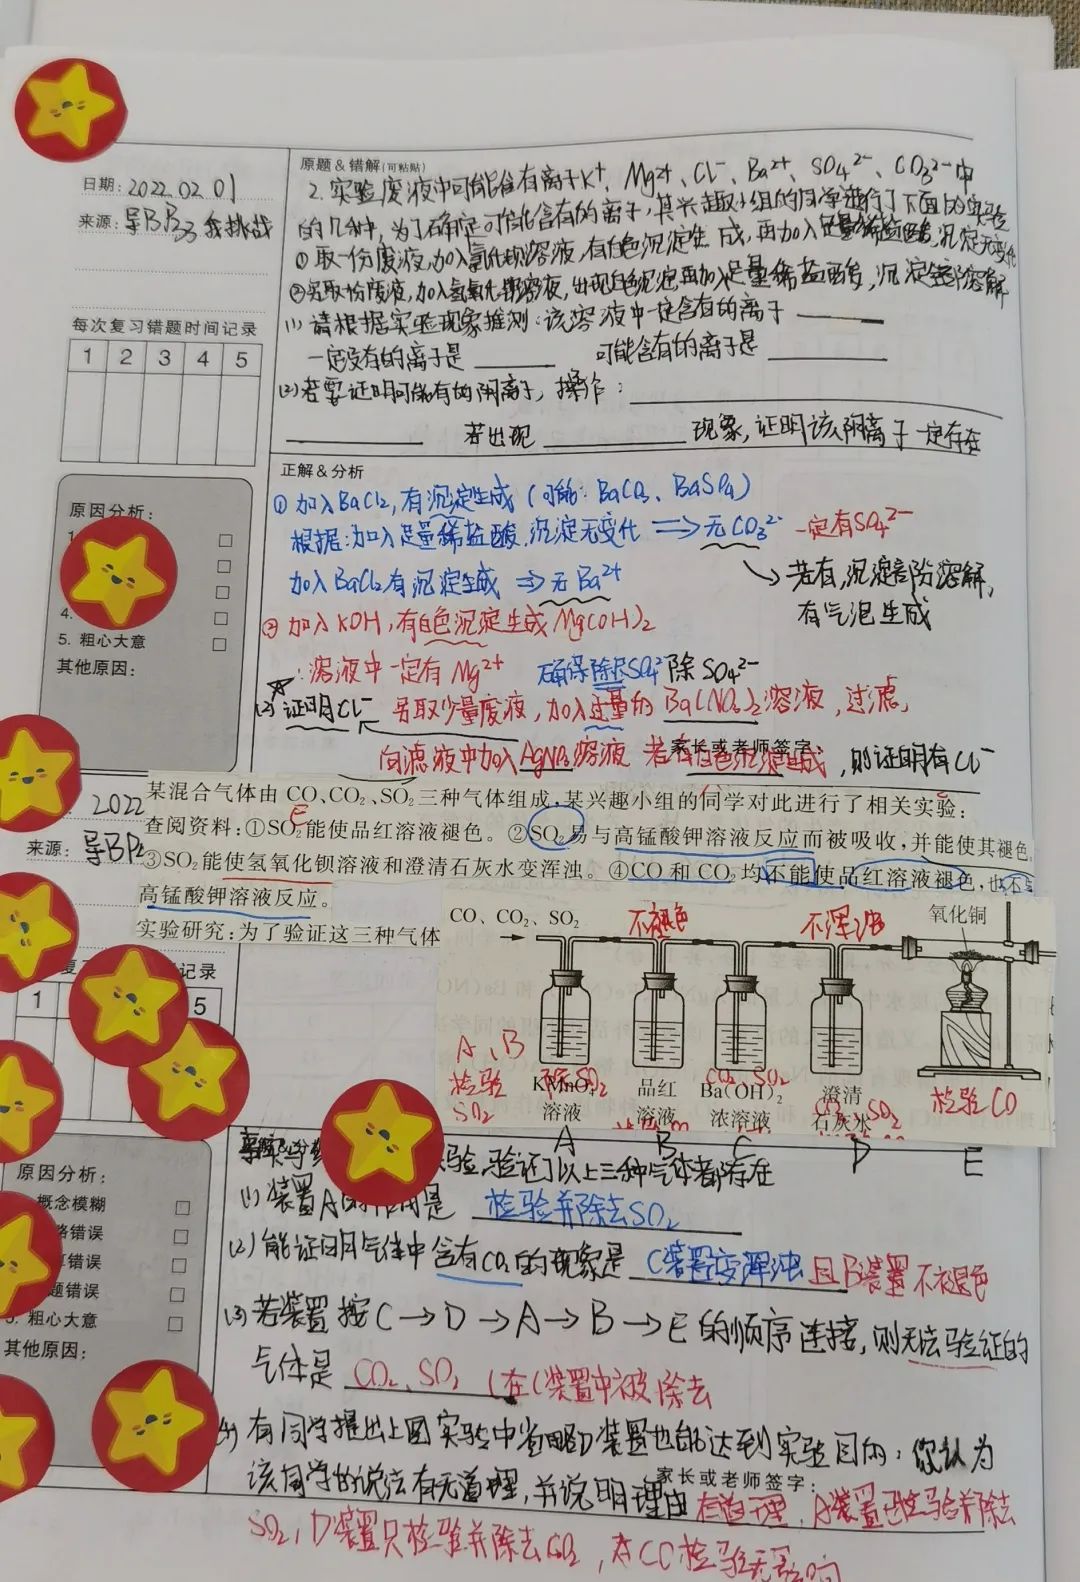 原题&错解(可粘贴)
日期:2022.02.01
来源:导BP33 我挑战
2.实验废液中可能含有离子K⁺、Mg²⁺、Cl⁻、Ba²⁺、SO₄²⁻、CO₃²⁻中
的几种,为了确定可能含有的离子,某兴趣小组的同学进行了下面的实验
①取一份废液,加入氯化钡溶液,有白色沉淀生成,再加入足量稀盐酸,沉淀无变化
②另取一份废液,加入氢氧化钾溶液,出现白色沉淀,再加入足量稀盐酸,沉淀全部溶解
(1)请根据实验现象推测:该溶液中一定含有的离子
一定没有的离子是 可能含有的离子是
(2)若要证明可能有的阴离子,操作:
若出现 现象,证明该阴离子一定存在
每次复习错题时间记录
1 2 3 4 5
正解&分析
①加入BaCl₂,有沉淀生成(可能:BaCO₃、BaSO₄)
根据:加入足量稀盐酸,沉淀无变化 ⇒ 无CO₃²⁻ 一定有SO₄²⁻
加入BaCl₂有沉淀生成 ⇒ 无Ba²⁺
若有,沉淀部分溶解,
有气泡生成
②加入KOH,有白色沉淀生成Mg(OH)₂
∴溶液中一定有Mg²⁺ 确保除尽SO₄²⁻ 除SO₄²⁻
(2)证明Cl⁻ 另取少量废液,加入过量的Ba(NO₃)₂溶液,过滤,
向滤液中加入AgNO₃溶液 若有白色沉淀生成,则证明有Cl⁻
家长或老师签字:
原因分析:
4.
5. 粗心大意
其他原因:
2022
来源:导BP
某混合气体由 CO、CO₂、SO₂三种气体组成,某兴趣小组的同学对此进行了相关实验:
查阅资料:①SO₂能使品红溶液褪色。②SO₂易与高锰酸钾溶液反应而被吸收,并能使其褪色。
③SO₂能使氢氧化钡溶液和澄清石灰水变浑浊。④CO 和 CO₂均不能使品红溶液褪色,也不与
高锰酸钾溶液反应。
实验研究:为了验证这三种气体
CO、CO₂、SO₂ 不褪色 不浑浊 氧化铜
A、B
检验
SO₂
除SO₂
KMnO₄
溶液
品红
溶液
CO₂ SO₂
Ba(OH)₂
浓溶液
澄清
石灰水
CO₂、SO₂
检验CO
A B C D E
记录
1 5
验,验证了以上三种气体都存在
(1)装置A的作用是 检验并除去SO₂
(2)能证明气体中含有CO₂的现象是 C装置变浑浊且B装置不褪色
(3)若装置按C→D→A→B→E的顺序连接,则无法验证的
气体是 CO₂、SO₂ (在C装置中被除去
(4)有同学提出上图实验中省略D装置也能达到实验目的,您认为
该同学的说法有无道理,并说明理由 有道理,A装置已检验并除去
SO₂,D装置只检验并除去CO₂,对CO检验无影响
家长或老师签字:
原因分析:
概念模糊
略错误
算错误
题错误
粗心大意
其他原因: